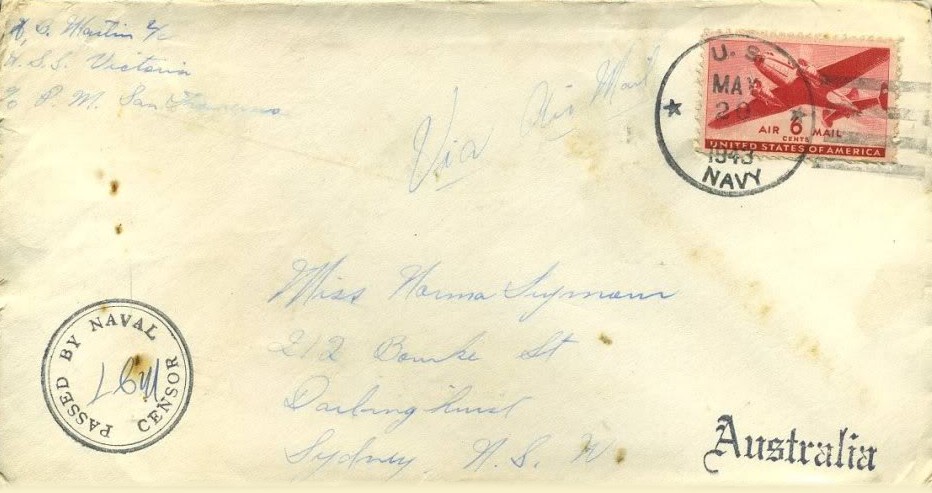 Martin S/c
U.S.S. Victoria
c/o P. M. San Francisco
Via Air Mail
U. S.
MAY
20
1943
NAVY
AIR 6 MAIL
CENTS
UNITED STATES OF AMERICA
Miss Norma Seymour
212 Bourke St
Darlinghurst
Sydney, N. S. W
PASSED BY NAVAL CENSOR
Australia